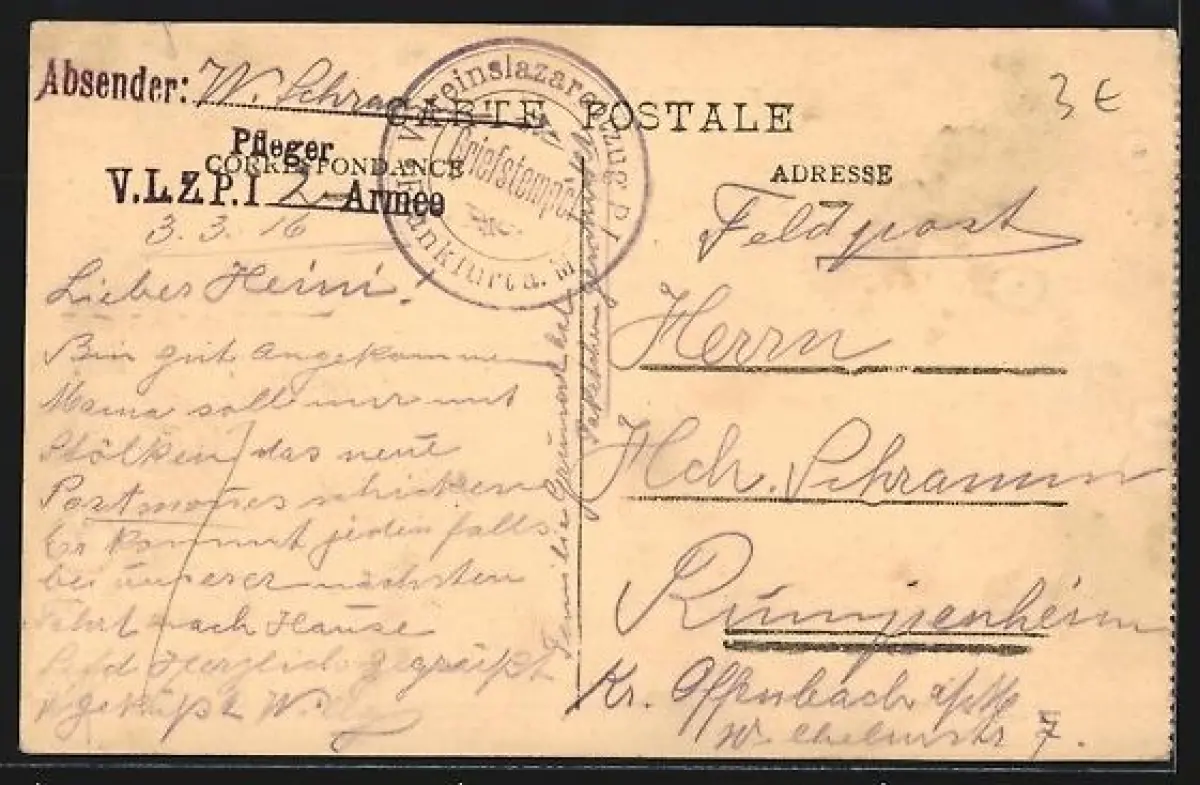 Absender: W. Schramm
CARTE POSTALE
3 €
Pfleger
CORRESPONDANCE
V.L.Z.P.I 2. Armee
Vereinslazarettzug P.I
Briefstempel
Frankfurt a. M
ADRESSE
3. 3. 16
Lieber Heini!
Bin gut angekommen
Mama soll mir mit
Stölken das neue
Portmones schicken
Er kommt jedenfalls
bei unserer nächsten
Fahrt nach Hause
Seid Herzlich gegrüßt
u geküßt Willy
Familie hat
Paketchen
Feldpost
Herrn
Hch. Schramm
Rumpenheim
Kr. Offenbach a/M
Wilhelmstr 7.